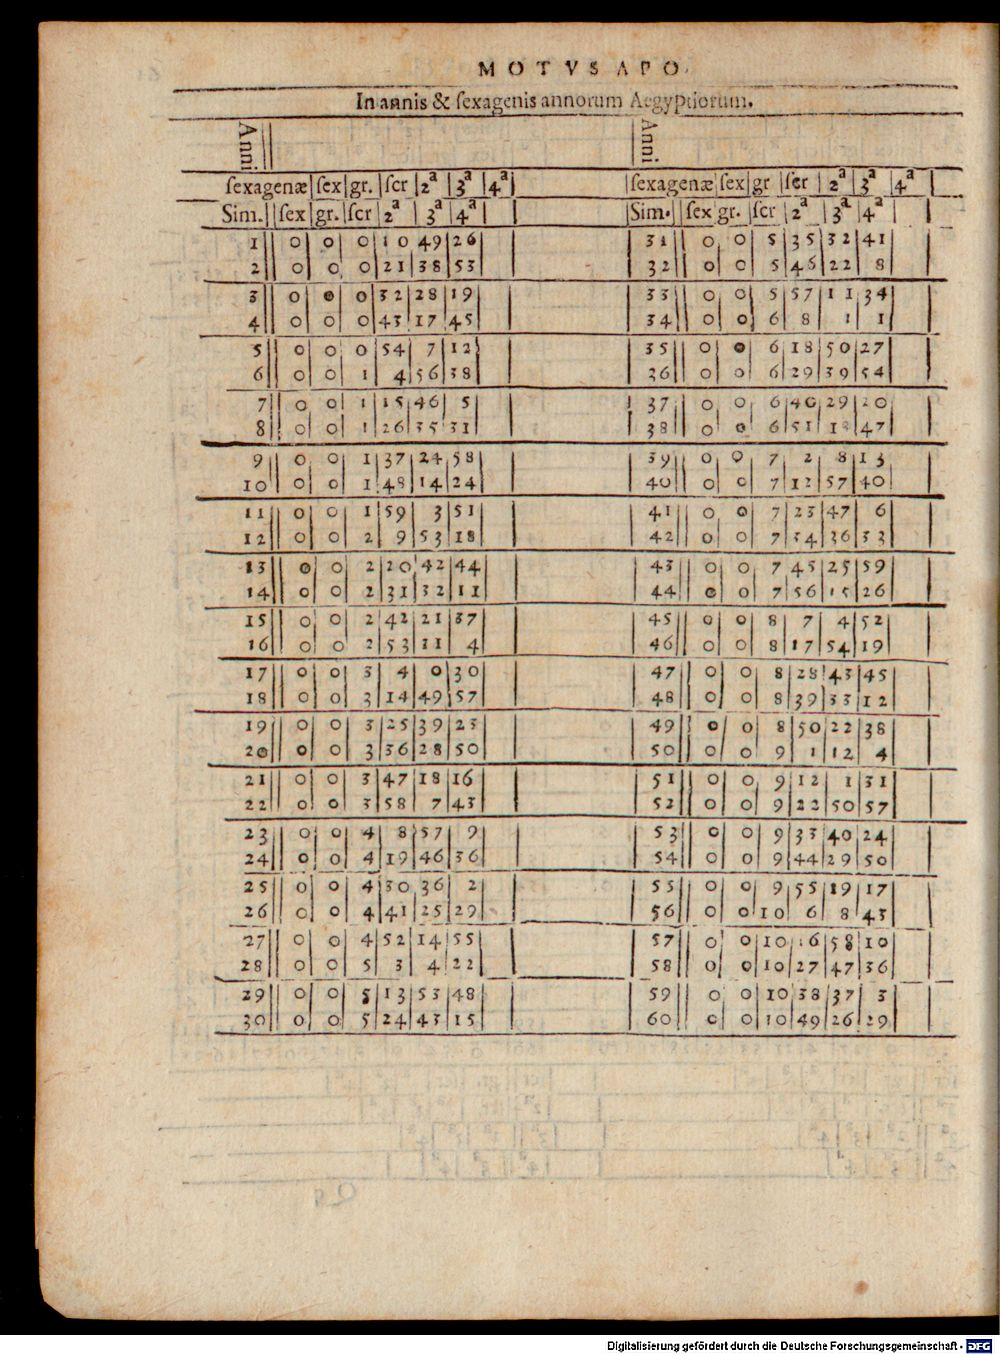 MOTVS APO.
In annis & ſexagenis annorum Aegyptiorum.
Anni Anni
ſexagenæ ſex gr. ſcr 2ª 3ª 4ª ſexagenæ ſex gr ſcr 2ª 3ª 4ª
Sim. ſex gr. ſcr 2ª 3ª 4ª Sim. ſex gr. ſcr 2ª 3ª 4ª
1 0 0 0 10 49 26 31 0 0 5 35 32 41
2 0 0 0 21 38 53 32 0 0 5 46 22 8
3 0 0 0 32 28 19 33 0 0 5 57 11 34
4 0 0 0 43 17 45 34 0 0 6 8 1 1
5 0 0 0 54 7 12 35 0 0 6 18 50 27
6 0 0 1 4 56 38 36 0 0 6 29 39 54
7 0 0 1 15 46 5 37 0 0 6 40 29 20
8 0 0 1 26 35 31 38 0 0 6 51 18 47
9 0 0 1 37 24 58 39 0 0 7 2 8 13
10 0 0 1 48 14 24 40 0 0 7 12 57 40
11 0 0 1 59 3 51 41 0 0 7 23 47 6
12 0 0 2 9 53 18 42 0 0 7 34 36 33
13 0 0 2 20 42 44 43 0 0 7 45 25 59
14 0 0 2 31 32 11 44 0 0 7 56 15 26
15 0 0 2 42 21 37 45 0 0 8 7 4 52
16 0 0 2 53 11 4 46 0 0 8 17 54 19
17 0 0 3 4 0 30 47 0 0 8 28 43 45
18 0 0 3 14 49 57 48 0 0 8 39 33 12
19 0 0 3 25 39 23 49 0 0 8 50 22 38
20 0 0 3 36 28 50 50 0 0 9 1 12 4
21 0 0 3 47 18 16 51 0 0 9 12 1 31
22 0 0 3 58 7 43 52 0 0 9 22 50 57
23 0 0 4 8 57 9 53 0 0 9 33 40 24
24 0 0 4 19 46 36 54 0 0 9 44 29 50
25 0 0 4 30 36 2 55 0 0 9 55 19 17
26 0 0 4 41 25 29 56 0 0 10 6 8 43
27 0 0 4 52 14 55 57 0 0 10 16 58 10
28 0 0 5 3 4 22 58 0 0 10 27 47 36
29 0 0 5 13 53 48 59 0 0 10 38 37 3
30 0 0 5 24 43 15 60 0 0 10 49 26 29
Digitalisierung gefördert durch die Deutsche Forschungsgemeinschaft - DFG